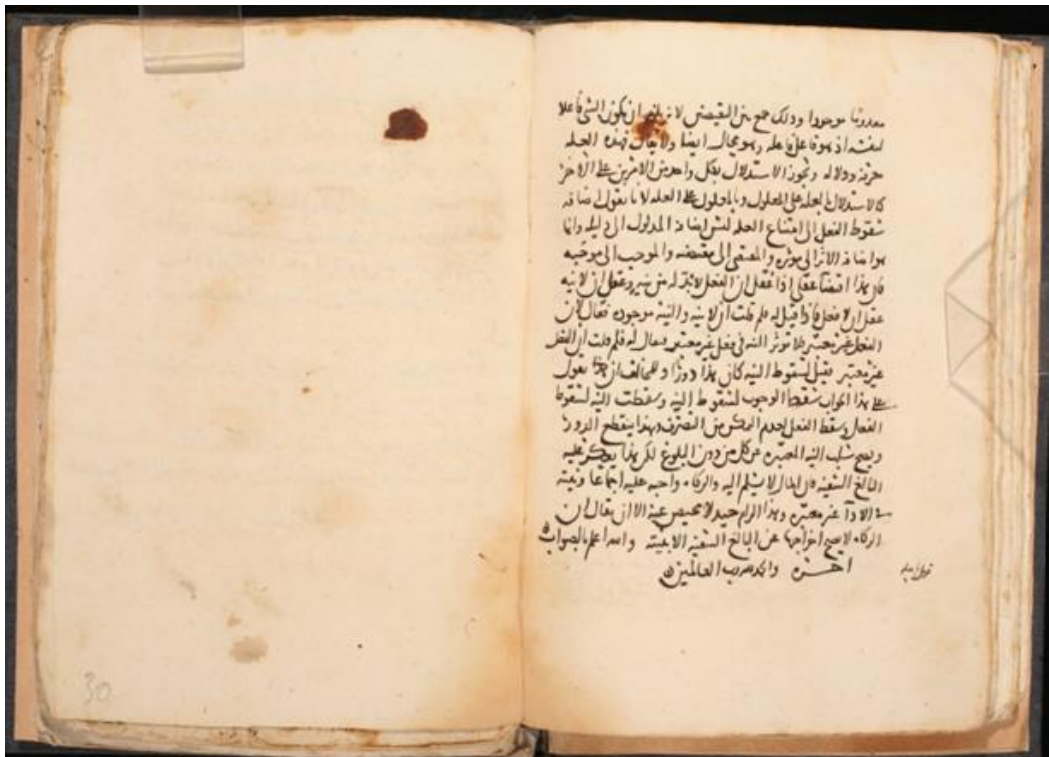 معدوما موجودا وذلك جمع بين النقيضين لانه يلزم ان يكون الشي فاعلا
لنفسه اذ هو فاعل فاعله وهو محال ايضا ولا يقال فهذه العله
ودلاله ويجوز الاستدلال بكل واحد من الامرين على الاخر
كالاستدلال بالعله على المعلول وبالمعلول على العله لانا نقول اضافه
سقوط الفعل الى امتناع العله ليس اضافة المدلول الى دليله وانما
هو اضافة الاثر الى موثره والمقتضى الى مقتضيه والموجب الى موجبه
فان هذا عقلي اذا عقل ان الفعل لا بد له من عقل ان لا نيه
عقل ان لا فعل فاذا قيل له فلم قلت ان لا نيه والنيه موجوده فقال لان
الفعل غير معتبر فلا توثر النيه في فعل غير معتبر فيقال له فلم قلت ان الفعل
غير معتبر فيقول لسقوط النيه كان هذا دورا وللمخالف ان يقول
على هذا الجواب سقط الوجوب لسقوط النيه وسقطت النيه لسقوط
الفعل وسقط الفعل لعدم التمكن من التصرف وبهذا ينقطع الدور
ويصح سلب النيه المعتبره عن كل من دون البلوغ لكن هذا يعكر عليه
البالغ السفيه فان المال لا يسلم اليه والزكاه واجبه عليه اجماعا ونيته
في الادآ غير معتبره وهذا الزام جيد لا محيص عنه الا ان يقال ان
الزكاه لا يصح اخراجها عن البالغ السفيه الا بنيته والله اعلم بالصواب
اخره والحمد لله رب العالمين
30